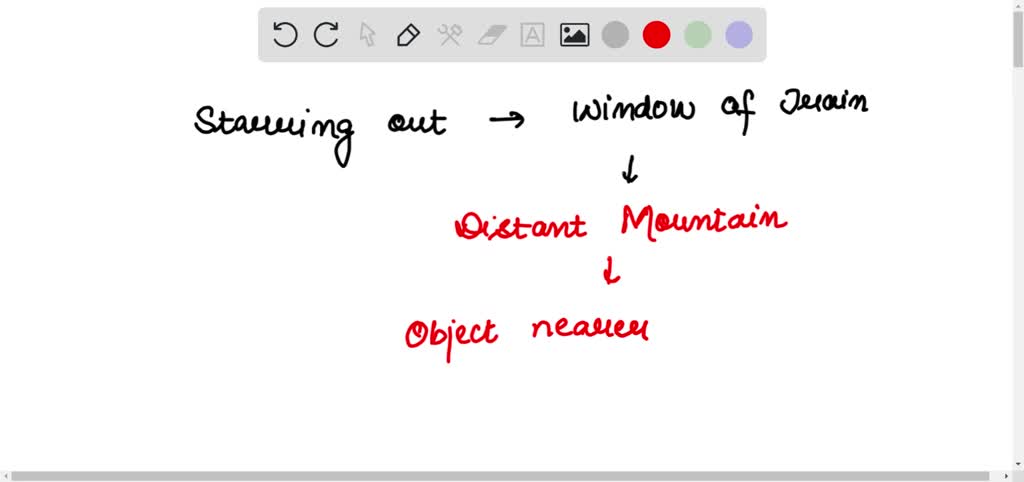 Starring out → Window of Train
↓
Distant Mountain
↓
Object nearer